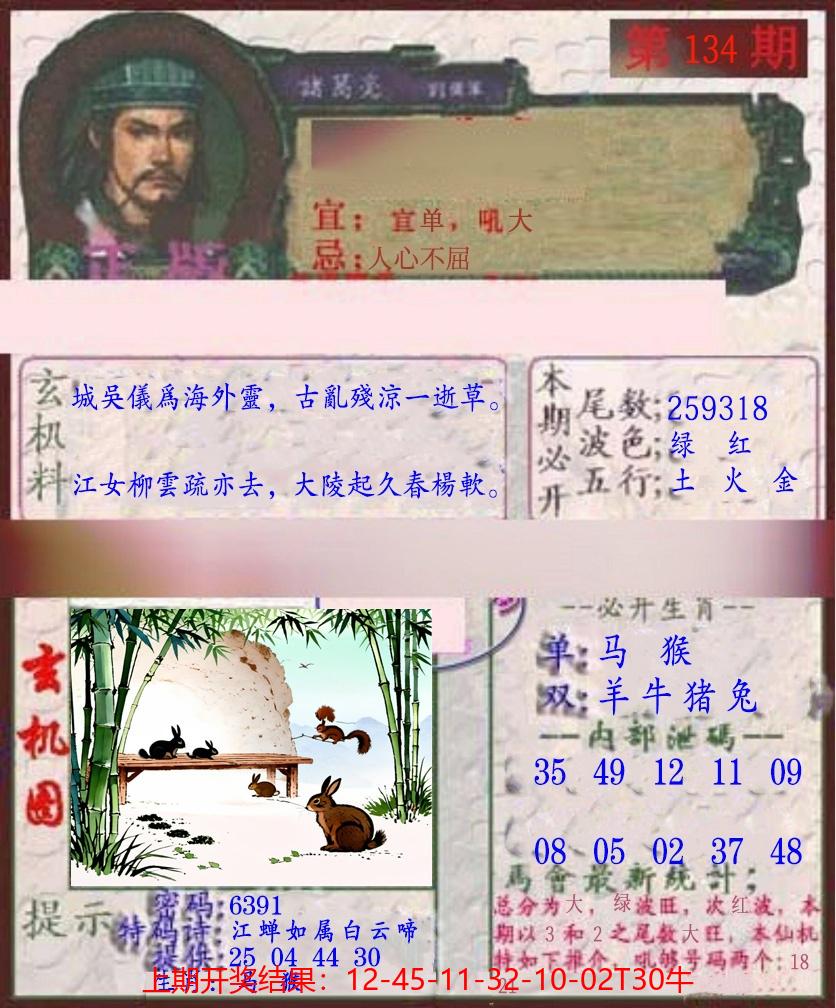 第 134 期
諸葛亮
正版
宜：宜单，吼大
忌：人心不屈
玄机料
城吴儀爲海外靈，古亂殘涼一逝草。
江女柳雲疏亦去，大陵起久春楊軟。
本期必开
尾数;259318
波色;绿 红
五行;土 火 金
玄机图
--必开生肖--
单:马 猴
双:羊牛猪兔
内部泄碼
35 49 12 11 09
08 05 02 37 48
馬會最新統計;
总分为大，绿波旺，次红波，本
期以3和2之尾数大旺，本仙机
特如下推介，吼够号码两个:18
21
提示
密码:6391
特码诗:江蝉如属白云啼
提供:25 04 44 30
生肖:马 猴
上期开奖结果：12-45-11-32-10-02T30牛